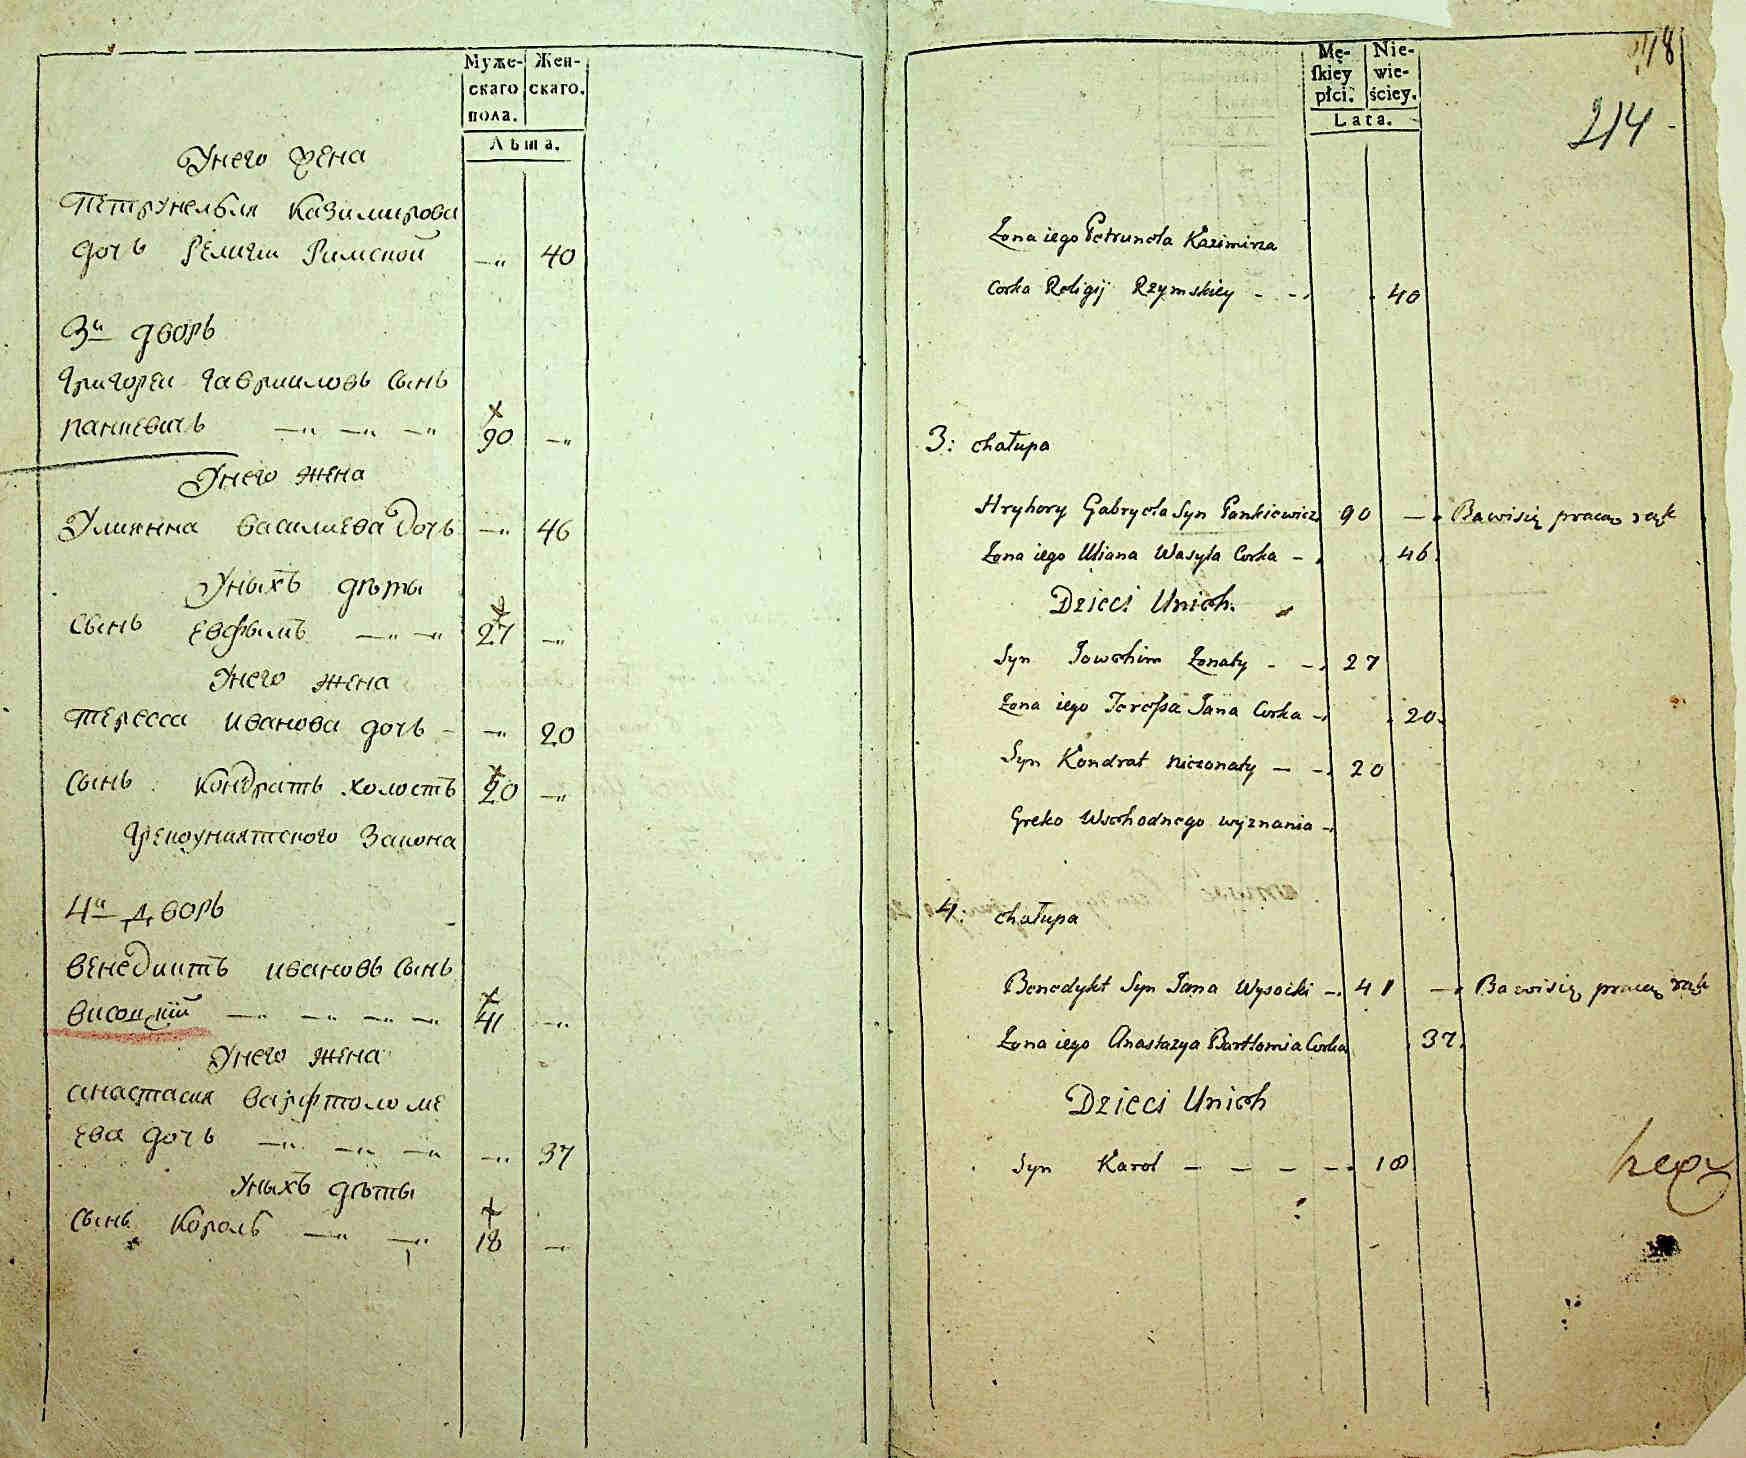 Муже-
скаго
пола.
Жен-
скаго.
Лѣта.
Унего жена
Петрунелья Казимирова
дочь Религи Римской —„ 40
3й дворъ
Григореи Гавриловъ сынъ
Панкевичъ —„ —„ —„ 90 —„
Унего жена
Улиянна Василиева дочь —„ 46
Уныхъ дѣты
сынъ Евфимъ —„ —„ 27 —„
Унего жена
Тересса Иванова дочь —„ 20
сынъ Кондратъ холостъ 20 —„
Грекоуниятского Закона
4й дворъ
Венедиктъ Ивановъ сынъ
Висоцкий —„ —„ —„ —„ 41 —„
Унего жена
Анастасия Варфтоломе
ева дочь —„ —„ —„ —„ 37
Уныхъ дѣты
сынъ Кароль —„ —„ 18 —„
Mę-
ſkiey
płci.
Nie-
wie-
ściey.
Lata.
18
214
Żona iego Petrunela Kazimirza
Corka Religij Rzymskiey - - 40
3: chałupa
Hryhory Gabryela Syn Pankiewicz 90 — Bawi się pracą rąk
Żona iego Uliana Wasyla Corka - 46
Dzieci Unich
Syn Jowchim żonaty - - 27
Żona iego Teressa Jana Corka - 20
Syn Kondrat nieżonaty - - 20
Greko Wschodnego wyznania -
4: chałupa
Benedykt Syn Jana Wysocki - 41 — Bawi się pracą rąk
Żona iego Anastazya Bartłomia Corka 37
Dzieci Unich
Syn Karol - - - - 18